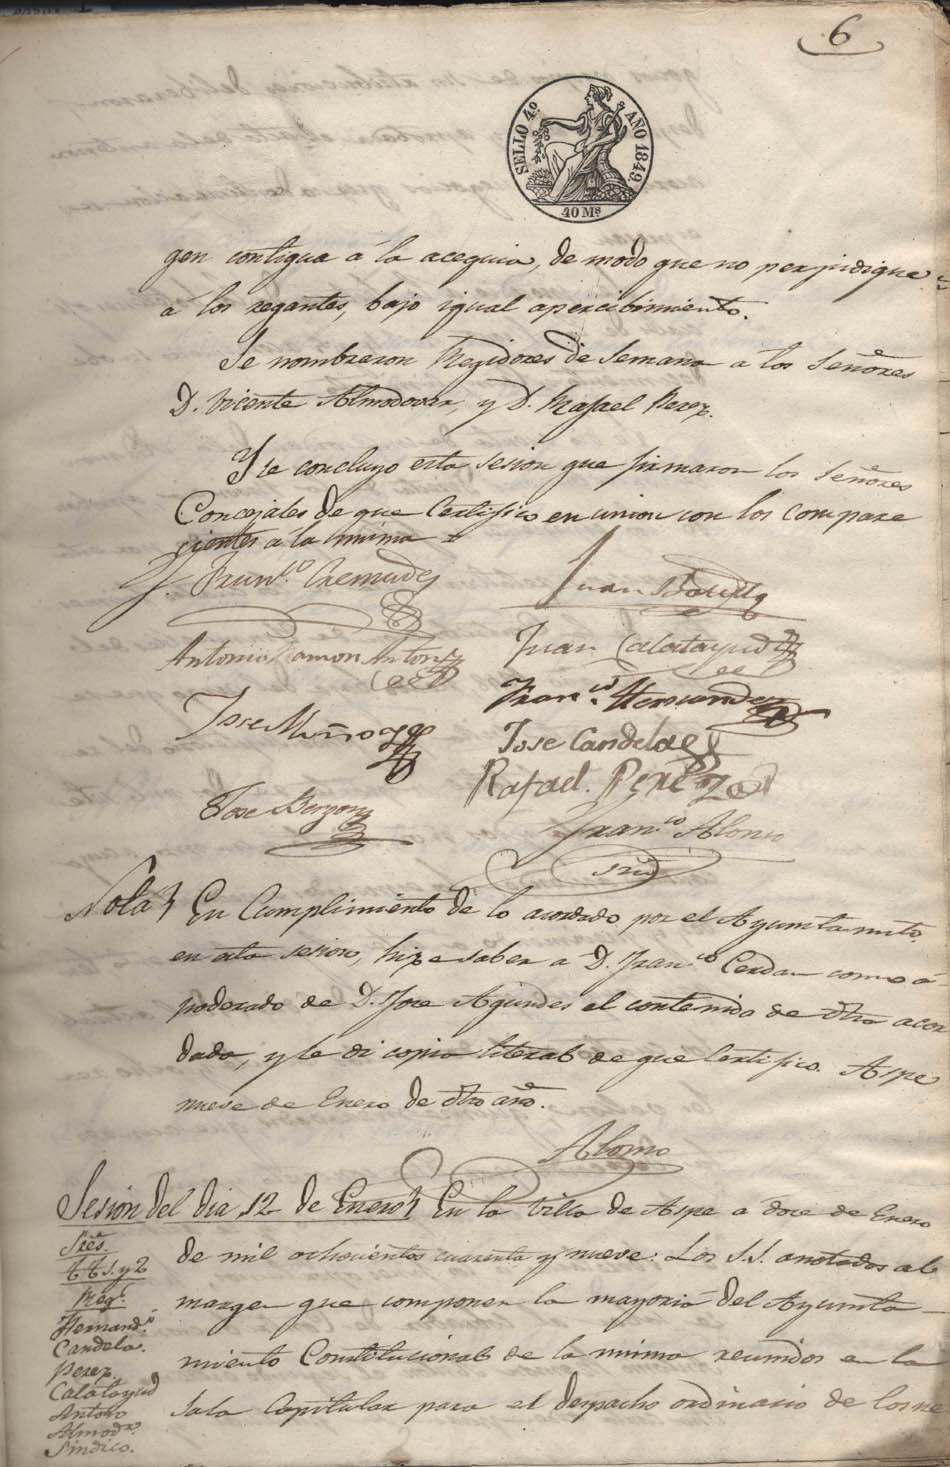 6
SELLO 4º AÑO 1849.
40 Ms
gen contigua á la acequia, de modo que no perjudique
á los regantes, bajo igual apercibimiento.
Se nombraron Regidores de Semana a los Señores
D. Vicente Almodovar, y D. Rafael Perez.
Y se concluyo esta sesion que firmaron los Señores
Concejales de que Certifico en union con los compare
cientes a la misma
Franco Cremades
Juan
Antonio Ramon Anton
Juan Calatayud
Jose Muñoz
Franco Hernandez
Jose Candela
Rafael Perez
Jose
Franco Alonso
Srio
Nota En Cumplimiento de lo acordado por el Ayuntamto
en esta sesion, hize saber a D. Franco Cerdan como a
poderado de D. Jose el contenido de dho acor
dado, y le di copia literal de que Certifico. Aspe
nueve de Enero de dho año.
Alonso
Sesion del dia 12 de Enero En la Villa de Aspe a doce de Enero
de mil ochocientos cuarenta y nueve: Los S.S. anotados al
margen que componen la mayoria del Ayunta
miento Constitucional de la misma reunidos en la
Sala Capitular para el despacho ordinario de los ne
Sres.
AA 1. y 2
Regs
Hernandz
Candela.
Perez.
Calatayud
Anton
Almodr.
Síndico.